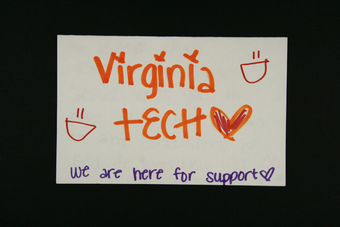 Virginia
tECH
we are here for support